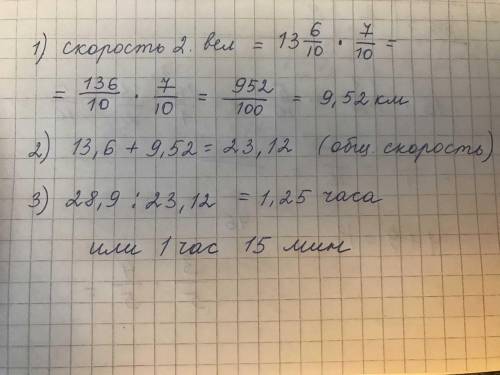 1) скорость 2. вел = 13 6/10 · 7/10 =
= 136/10 · 7/10 = 952/100 = 9,52 км
2) 13,6 + 9,52 = 23,12 (общ. скорость)
3) 28,9 : 23,12 = 1,25 часа
или 1 час 15 мин